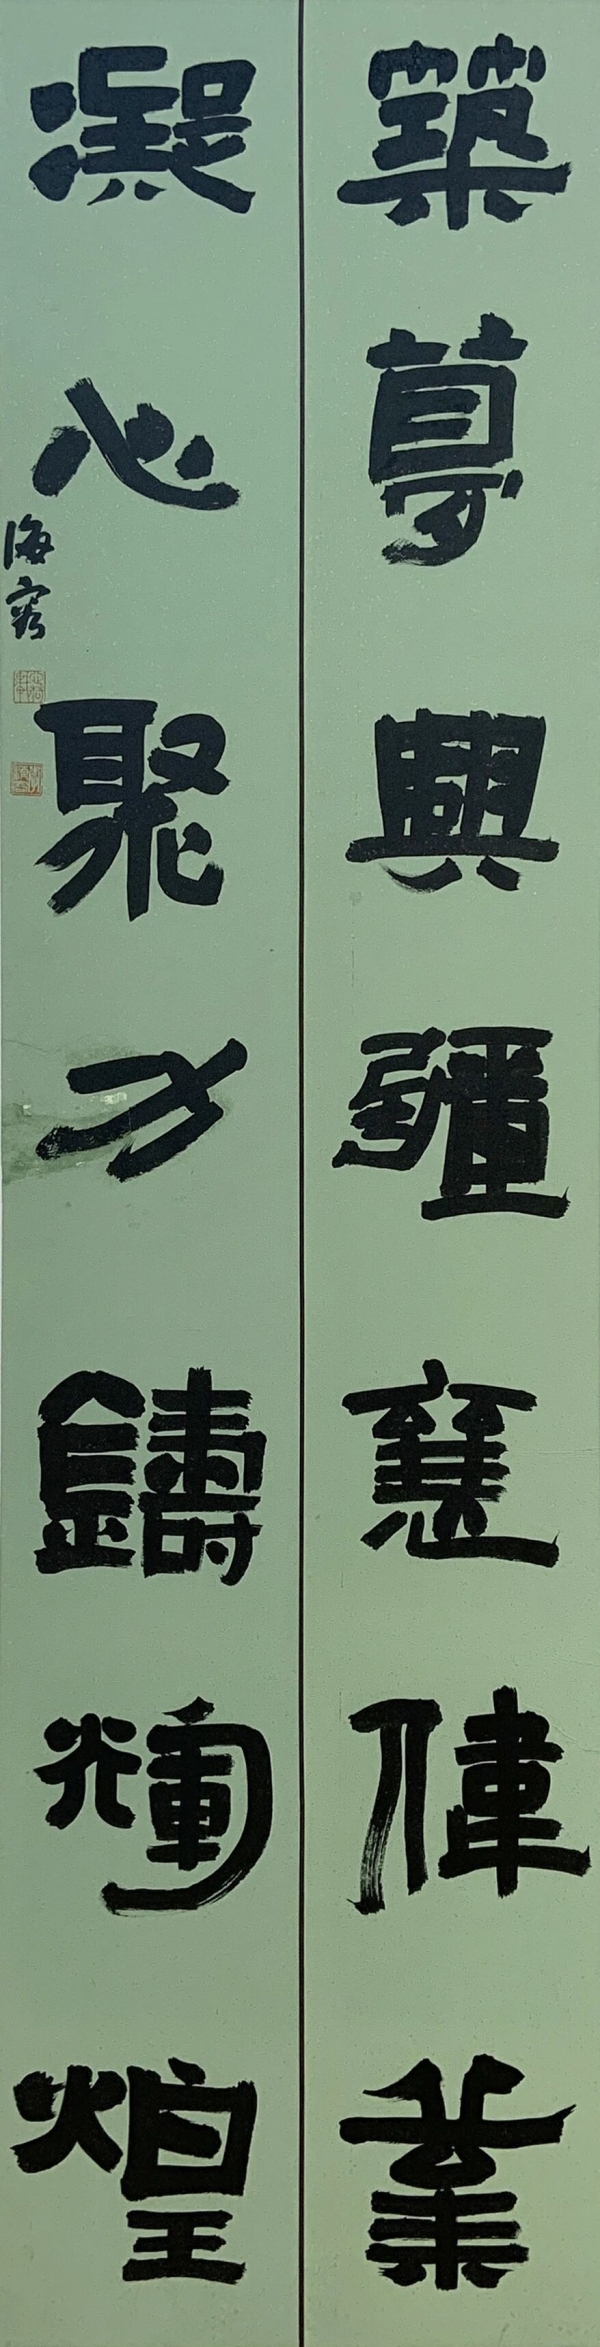 築夢興疆展偉業
凝心聚力鑄輝煌
海容